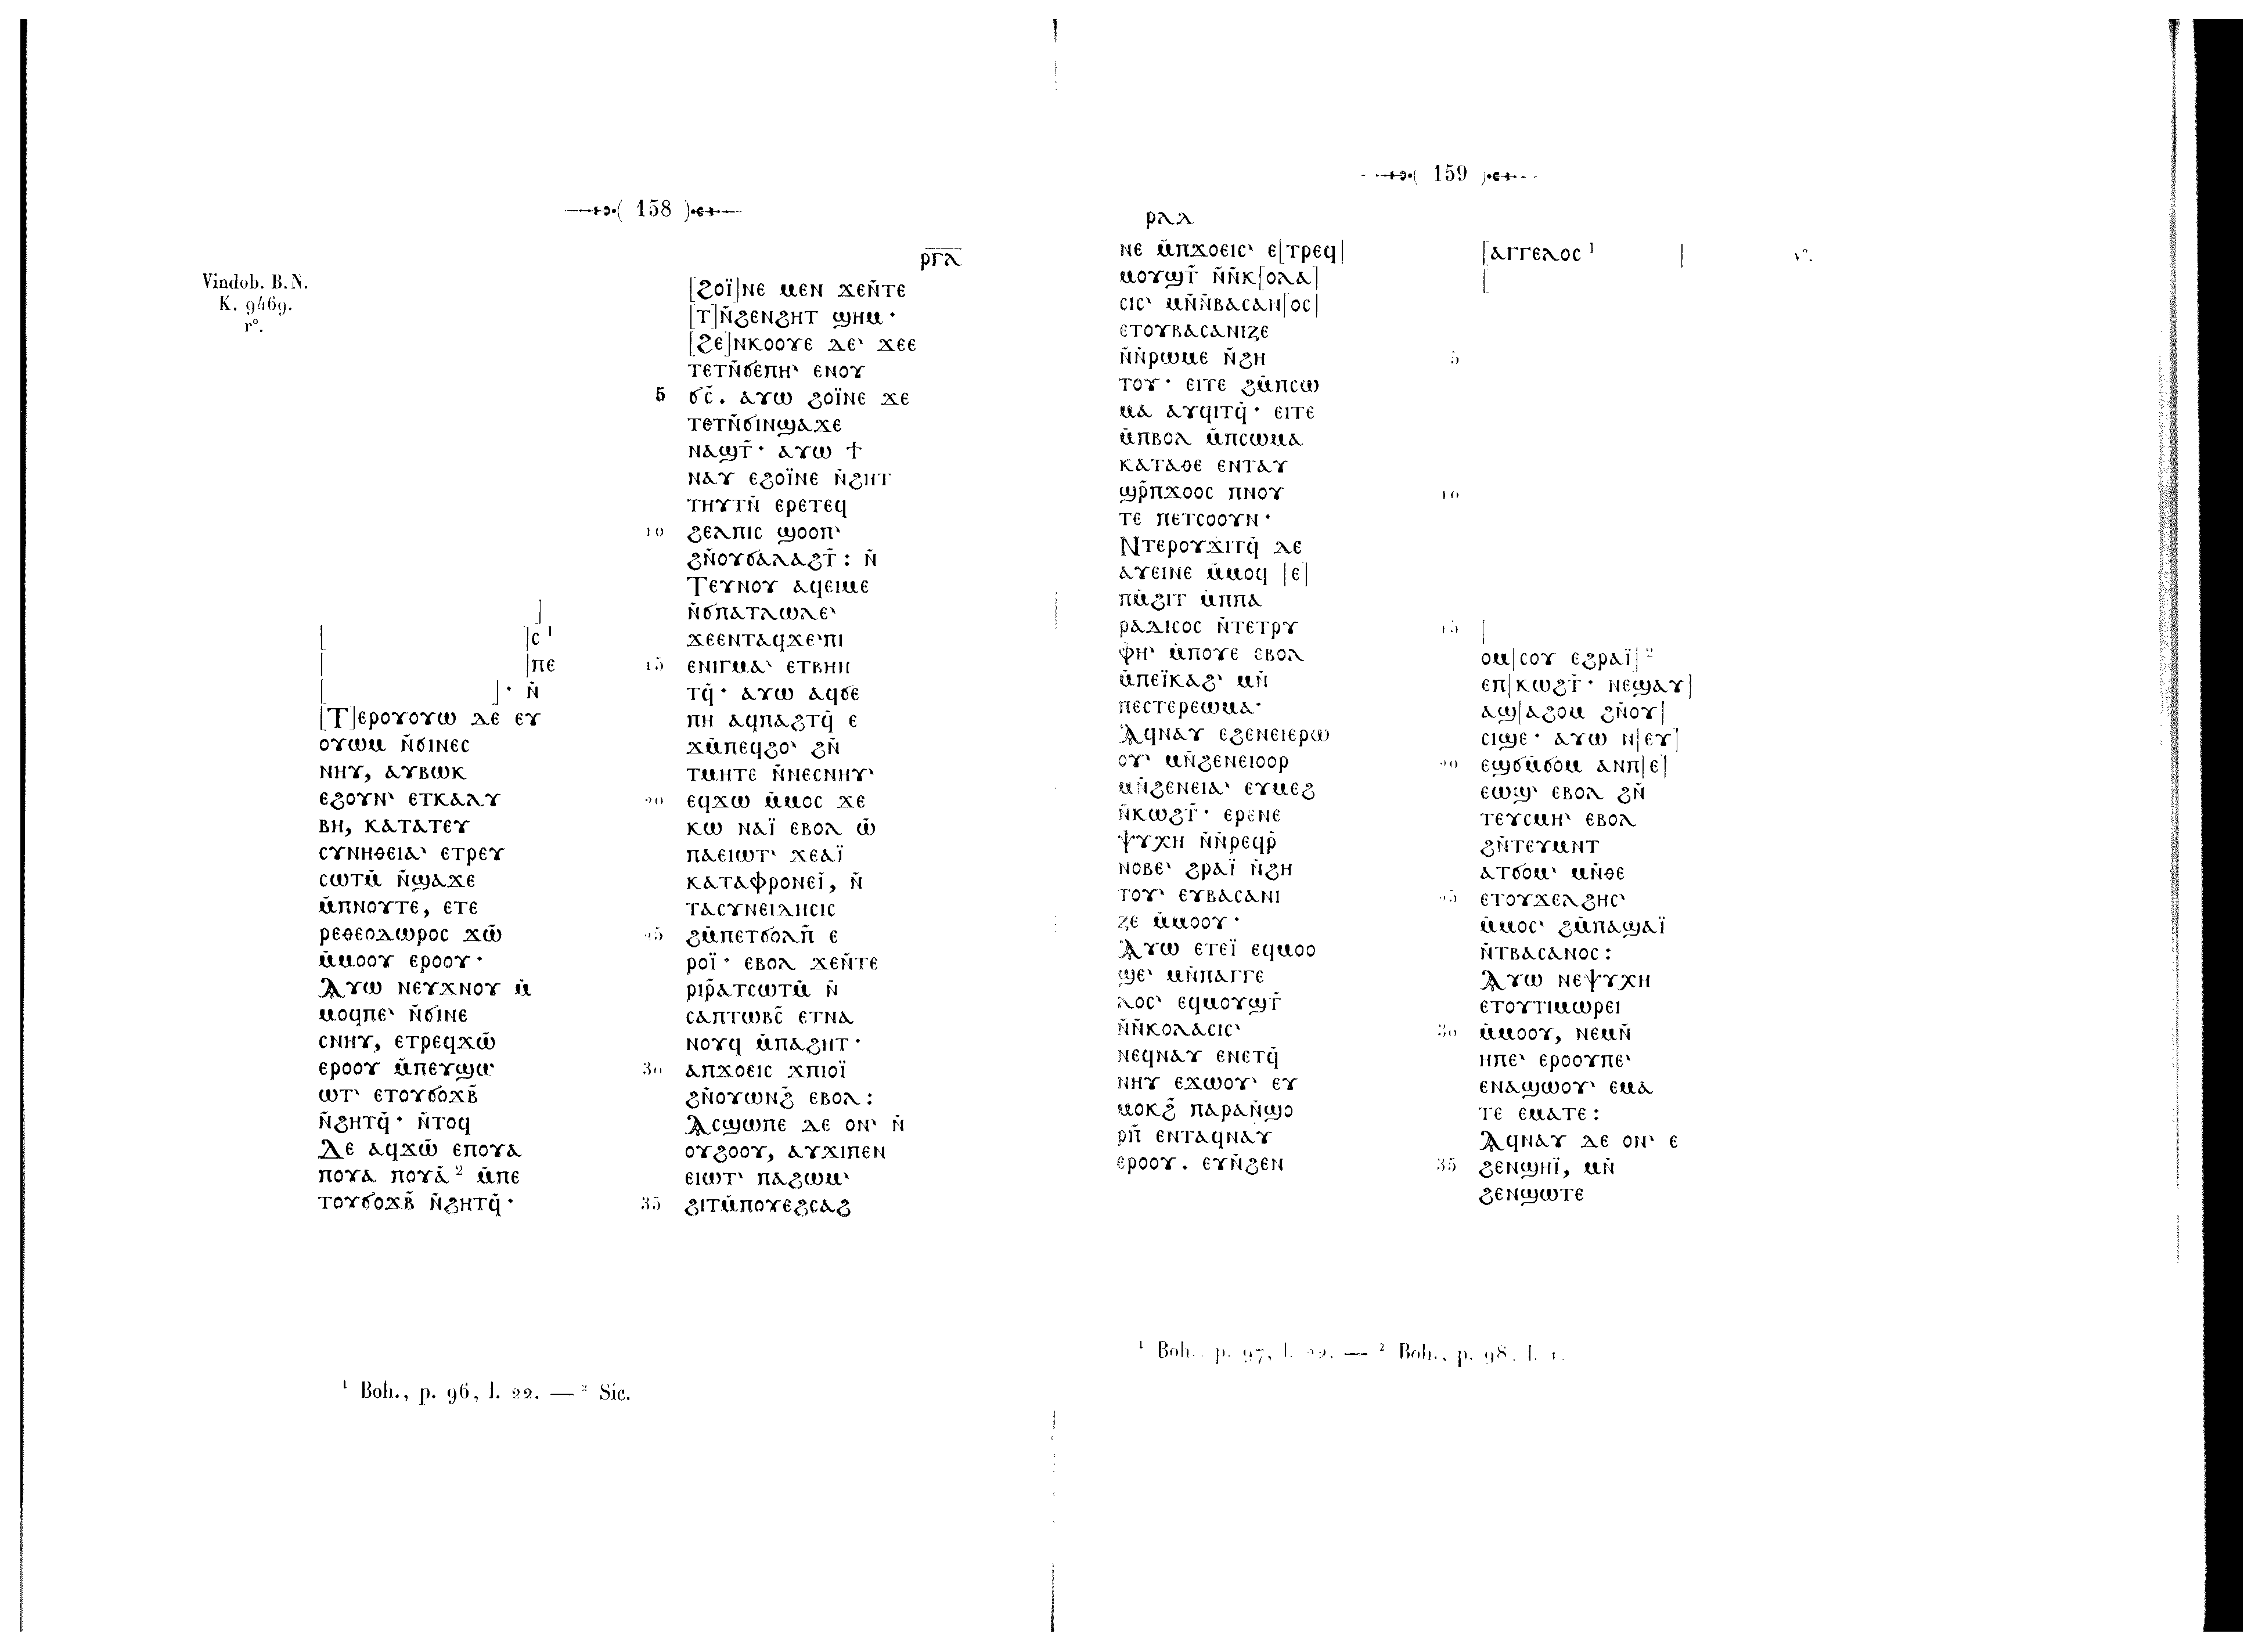 158
ⲣⲅⲗ
Vindob. B.N.
K. 9469.
r°.
]
[ ]ⲥ ¹
[ ]ⲡⲉ
[ ]· ⲛ̄
[Ⲧ]ⲉⲣⲟⲩⲟⲩⲱ ⲇⲉ ⲉⲩ
ⲟⲩⲱⲙ ⲛ̄ϭⲓⲛⲉⲥ
ⲛⲏⲩ, ⲁⲩⲃⲱⲕ
ⲉϩⲟⲩⲛ‵ ⲉⲧⲕⲁⲗⲩ
ⲃⲏ, ⲕⲁⲧⲁⲧⲉⲩ
ⲥⲩⲛⲏⲑⲉⲓⲁ‵ ⲉⲧⲣⲉⲩ
ⲥⲱⲧⲙ̄ ⲛ̄ϣⲁϫⲉ
ⲙ̄ⲡⲛⲟⲩⲧⲉ, ⲉⲧⲉ
ⲣⲉⲑⲉⲟⲇⲱⲣⲟⲥ ϫⲱ̄
ⲙ̄ⲙⲟⲟⲩ ⲉⲣⲟⲟⲩ·
Ⲁⲩⲱ ⲛⲉⲩϫⲛⲟⲩ ⲙ̄
ⲙⲟϥⲡⲉ‵ ⲛ̄ϭⲓⲛⲉ
ⲥⲛⲏⲩ, ⲉⲧⲣⲉϥϫⲱ̄
ⲉⲣⲟⲟⲩ ⲙ̄ⲡⲉⲩϣⲱ‵
ⲱⲧ‵ ⲉⲧⲟⲩϭⲟϫⲃ̄
ⲛ̄ϩⲏⲧϥ̄· ⲛ̄ⲧⲟϥ
Ⲇⲉ ⲁϥϫⲱ̄ ⲉⲡⲟⲩⲁ
ⲡⲟⲩⲁ ⲡⲟⲩⲁ̄ ² ⲙ̄ⲡⲉ
ⲧⲟⲩϭⲟϫⲃ̄ ⲛ̄ϩⲏⲧϥ̄·
[ϩⲟⲓ̈]ⲛⲉ ⲙⲉⲛ ϫⲉⲛ̄ⲧⲉ
[ⲧ]ⲛ̄ϩⲉⲛϩⲏⲧ ϣⲏⲙ·
[ϩⲉ]ⲛⲕⲟⲟⲩⲉ ⲇⲉ‵ ϫⲉⲉ
ⲧⲉⲧⲛ̄ϭⲉⲡⲏ‵ ⲉⲛⲟⲩ
5 ϭⲥ̄. ⲁⲩⲱ ϩⲟⲓ̈ⲛⲉ ϫⲉ
ⲧⲉⲧⲛ̄ϭⲓⲛϣⲁϫⲉ
ⲛⲁϣⲧ̄· ⲁⲩⲱ ϯ
ⲛⲁⲩ ⲉϩⲟⲓ̈ⲛⲉ ⲛ̄ϩⲏⲧ
ⲧⲏⲩⲧⲛ̄ ⲉⲣⲉⲧⲉϥ
10 ϩⲉⲗⲡⲓⲥ ϣⲟⲟⲡ‵
ϩⲛ̄ⲟⲩϭⲁⲗⲁϩⲧ̄: ⲛ̄
Ⲧⲉⲩⲛⲟⲩ ⲁϥⲉⲓⲙⲉ
ⲛ̄ϭⲡⲁⲧⲗⲱⲗⲉ‵
ϫⲉⲉⲛⲧⲁϥϫⲉ‵ⲡⲓ
15 ⲉⲛⲓⲅⲙⲁ‵ ⲉⲧⲃⲏⲏ
ⲧϥ̄· ⲁⲩⲱ ⲁϥϭⲉ
ⲡⲏ ⲁϥⲡⲁϩⲧϥ̄ ⲉ
ϫⲙ̄ⲡⲉϥϩⲟ‵ ϩⲛ̄
ⲧⲙⲏⲧⲉ ⲛ̄ⲛⲉⲥⲛⲏⲩ‵
20 ⲉϥϫⲱ ⲙ̄ⲙⲟⲥ ϫⲉ
ⲕⲱ ⲛⲁⲓ̈ ⲉⲃⲟⲗ ⲱ̄
ⲡⲁⲉⲓⲱⲧ‵ ϫⲉⲁⲓ̈
ⲕⲁⲧⲁⲫⲣⲟⲛⲉⲓ̈, ⲛ̄
ⲧⲁⲥⲩⲛⲉⲓⲇⲏⲥⲓⲥ
25 ϩⲙ̄ⲡⲉⲧϭⲟⲗⲡ̄ ⲉ
ⲣⲟⲓ̈· ⲉⲃⲟⲗ ϫⲉⲛ̄ⲧⲉ
ⲣⲓⲣ̄ⲁⲧⲥⲱⲧⲙ̄ ⲛ̄
ⲥⲁⲡⲧⲱⲃⲥ̄ ⲉⲧⲛⲁ
ⲛⲟⲩϥ ⲙ̄ⲡⲁϩⲏⲧ·
30 ⲁⲡϫⲟⲉⲓⲥ ϫⲡⲓⲟⲓ̈
ϩⲛ̄ⲟⲩⲱⲛϩ̄ ⲉⲃⲟⲗ:
Ⲁⲥϣⲱⲡⲉ ⲇⲉ ⲟⲛ‵ ⲛ̄
ⲟⲩϩⲟⲟⲩ, ⲁⲩϫⲓⲡⲉⲛ
ⲉⲓⲱⲧ‵ ⲡⲁϩⲱⲙ‵
35 ϩⲓⲧⲙ̄ⲡⲟⲩⲉϩⲥⲁϩ
¹ Boh., p. 96, l. 22. — ² Sic.
159
ⲣⲗⲇ
ⲛⲉ ⲙ̄ⲡϫⲟⲉⲓⲥ‵ ⲉ[ⲧⲣⲉϥ]
ⲙⲟⲩϣⲧ̄ ⲛ̄ⲛ̄ⲕ[ⲟⲗⲁ]
ⲥⲓⲥ‵ ⲙⲛ̄ⲛ̄ⲃⲁⲥⲁⲛ[ⲟⲥ]
ⲉⲧⲟⲩⲃⲁⲥⲁⲛⲓⲍⲉ
ⲛ̄ⲛ̄ⲣⲱⲙⲉ ⲛ̄ϩⲏ
ⲧⲟⲩ· ⲉⲓⲧⲉ ϩⲙ̄ⲡⲥⲱ
ⲙⲁ ⲁⲩϥⲓⲧϥ̄· ⲉⲓⲧⲉ
ⲙ̄ⲡⲃⲟⲗ ⲙ̄ⲡⲥⲱⲙⲁ
ⲕⲁⲧⲁⲑⲉ ⲉⲛⲧⲁⲩ
ϣⲣ̄ⲡϫⲟⲟⲥ ⲡⲛⲟⲩ
ⲧⲉ ⲡⲉⲧⲥⲟⲟⲩⲛ·
Ⲛⲧⲉⲣⲟⲩϫⲓⲧϥ̄ ⲇⲉ
ⲁⲩⲉⲓⲛⲉ ⲙ̄ⲙⲟϥ [ⲉ]
ⲡⲙ̄ϩⲓⲧ ⲙ̄ⲡⲡⲁ
ⲣⲁⲇⲓⲥⲟⲥ ⲛ̄ⲧⲉⲧⲣⲩ
ⲫⲏ‵ ⲙ̄ⲡⲟⲩⲉ ⲉⲃⲟⲗ
ⲙ̄ⲡⲉⲓ̈ⲕⲁϩ‵ ⲙⲛ̄
ⲡⲉⲥⲧⲉⲣⲉⲱⲙⲁ·
Ⲁϥⲛⲁⲩ ⲉϩⲉⲛⲉⲓⲉⲣⲱ
ⲟⲩ‵ ⲙⲛ̄ϩⲉⲛⲉⲓⲟⲟⲣ
ⲙⲛ̄ϩⲉⲛⲉⲓⲁ‵ ⲉⲩⲙⲉϩ
ⲛ̄ⲕⲱϩⲧ̄· ⲉⲣⲉⲛⲉ
ⲯⲩⲭⲏ ⲛ̄ⲛ̄ⲣⲉϥⲣ̄
ⲛⲟⲃⲉ‵ ϩⲣⲁⲓ̈ ⲛ̄ϩⲏ
ⲧⲟⲩ‵ ⲉⲩⲃⲁⲥⲁⲛⲓ
ⲍⲉ ⲙ̄ⲙⲟⲟⲩ·
Ⲁⲩⲱ ⲉⲧⲉⲓ̈ ⲉϥⲙⲟⲟ
ϣⲉ‵ ⲙⲛ̄ⲡⲁⲅⲅⲉ
ⲗⲟⲥ‵ ⲉϥⲙⲟⲩϣⲧ̄
ⲛ̄ⲛ̄ⲕⲟⲗⲁⲥⲓⲥ‵
ⲛⲉϥⲛⲁⲩ ⲉⲛⲉⲧϥ̄
ⲛⲏⲩ ⲉϫⲱⲟⲩ‵ ⲉⲩ
ⲙⲟⲕϩ̄ ⲡⲁⲣⲁⲛ̄ϣⲟ
ⲣⲡ̄ ⲉⲛⲧⲁϥⲛⲁⲩ
ⲉⲣⲟⲟⲩ. ⲉⲩⲛ̄ϩⲉⲛ
[ⲁⲅⲅⲉⲗⲟⲥ ¹ ] v°.
[
5
10
15 [
ⲟⲙ[ⲥⲟⲩ ⲉϩⲣⲁⲓ̈] ²
ⲉⲡ[ⲕⲱϩⲧ̄· ⲛⲉϣⲁⲩ]
ⲁϣ[ⲁϩⲟⲙ ϩⲛ̄ⲟⲩ]
ⲥⲓϣⲉ· ⲁⲩⲱ ⲛ[ⲉⲩ]
20 ⲉϣϭⲙ̄ϭⲟⲙ ⲁⲛⲡ[ⲉ]
ⲉⲱϣ‵ ⲉⲃⲟⲗ ϩⲛ̄
ⲧⲉⲩⲥⲙⲏ‵ ⲉⲃⲟⲗ
ϩⲛ̄ⲧⲉⲩⲙⲛⲧ
ⲁⲧϭⲟⲙ‵ ⲙⲛ̄ⲑⲉ
25 ⲉⲧⲟⲩϫⲉⲗϩⲏⲥ‵
ⲙ̄ⲙⲟⲥ‵ ϩⲙ̄ⲡⲁϣⲁⲓ̈
ⲛ̄ⲧⲃⲁⲥⲁⲛⲟⲥ:
Ⲁⲩⲱ ⲛⲉⲯⲩⲭⲏ
ⲉⲧⲟⲩⲧⲓⲙⲱⲣⲉⲓ
30 ⲙ̄ⲙⲟⲟⲩ, ⲛⲉⲙⲛ̄
ⲏⲡⲉ‵ ⲉⲣⲟⲟⲩⲡⲉ‵
ⲉⲛⲁϣⲱⲟⲩ‵ ⲉⲙⲁ
ⲧⲉ ⲉⲙⲁⲧⲉ:
Ⲁϥⲛⲁⲩ ⲇⲉ ⲟⲛ‵ ⲉ
35 ϩⲉⲛϣⲏⲓ̈, ⲙⲛ̄
ϩⲉⲛϣⲱⲧⲉ
¹ Boh., p. 97, l. 22. — ² Boh., p. 98, l. 1.